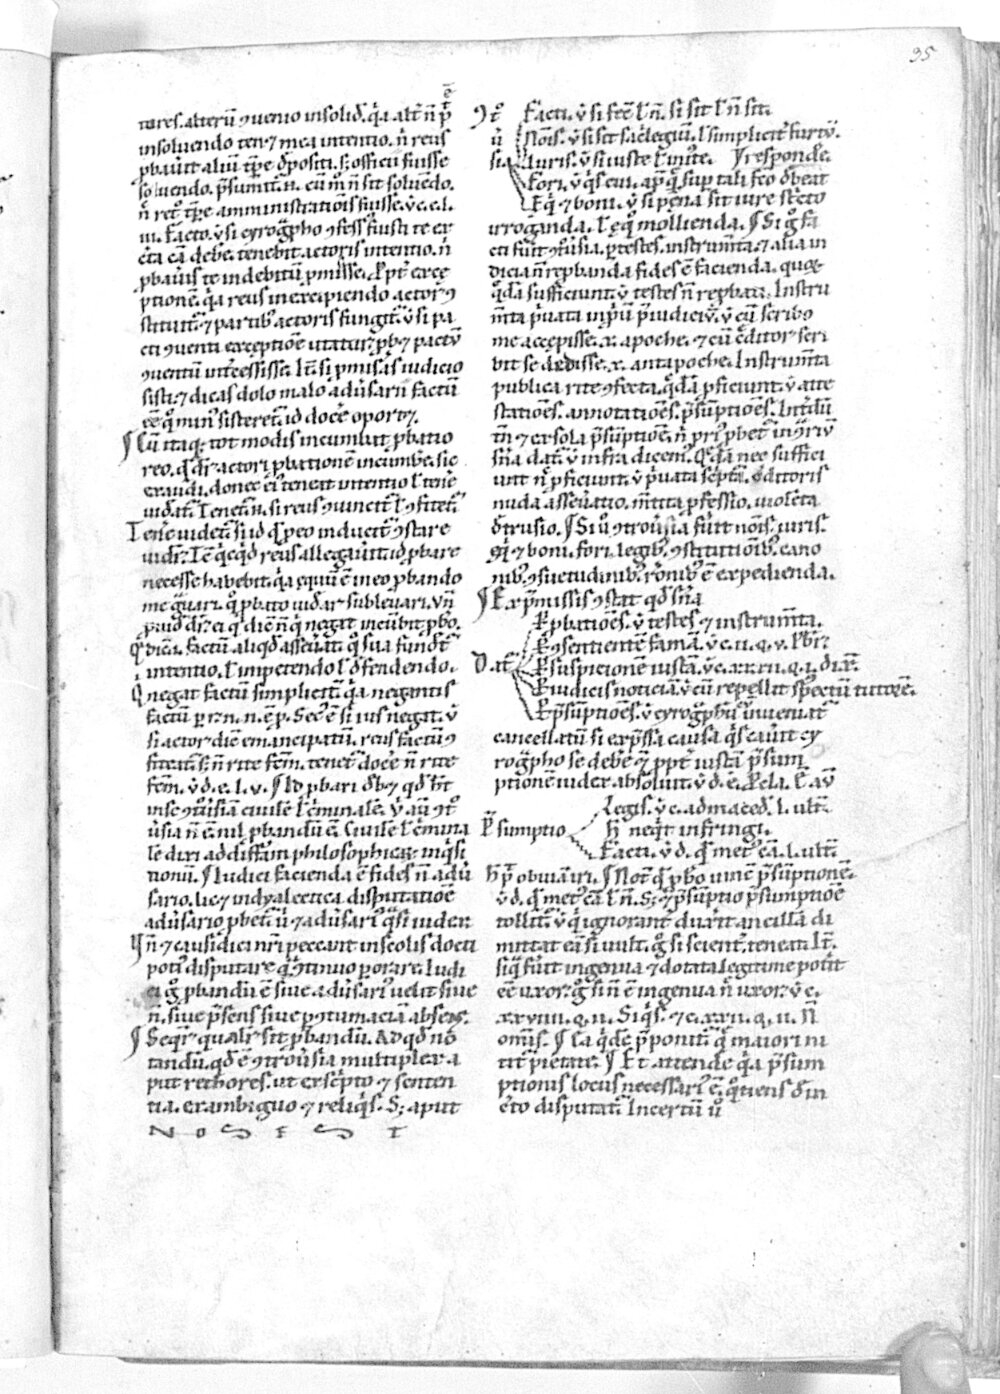 35
tores. alterū ꝯuenio insolid̄. q̇a alt̄ n̄ p̄ē
insoluendo ten⁊ mea intentio. n̄ reus
ꝓbauit aliū tp̄re d̄positi. s; officii fuisse
soluendo. p̄sumit᷑. n. cū m̊ n̄ sit soluēdo.
n̄ ret̊ tp̄re amministratiōis fuisse. v̄. c. e. l.
iii. Facto. v̄ si cyrogp̄ho ꝯfess᷒ fuisti te ex
c̄ta cā debē. tenebit᷑ actoris intentio. n̄
ꝓbaūis te indebitū ꝓmisisse. Ꝓpt̄ excę
ptionē. q̇a reus in excipiendo actor ꝯ
stituit᷑. ⁊ partib᷒ actoris fungit᷑. v̄ si pa
cti ꝯuenti exceptiōe utatur. ꝓb⁊ pactū
ꝯuentū int̄cessisse. It̄ si ꝓmisisti iudicio
sisti. ⁊ dicas dolo malo adūsarii factū
ēē q̊ min᷒ sisteret᷑. id docē oport⁊.
¶ Cū itaq; tot modis incumbat ꝓbatio
reo. q̊ dr̄ actori ꝓbationē incumbē. sic
exaudi. donec ei᷒ teneat intentio ł tene
uideat᷑. Tenet᷑. n. si reus ꝯuincit᷑ ł ꝯfitet᷑.
Tenē uidet᷑. si id q̊ ꝓ eo inducit᷑ ꝯstare
uidet᷑. Tc̄ q̇cq̇d reus allegauit id ꝓbare
necesse habebit. q̇a equū ē in eo ꝓbando
me grauari. q̊ ꝓbato uidear subleuari. Vn̄
ꝓuid̄ dr̄. ei q̇ dic̄ n̄ q̇ negat incūbit ꝓbo.
Q̇ dic̄. i. factū aliqd̄ asseūat. q̊ sua fundet᷑
intentio. ł impetendo ł d̄fendendo.
Q̇ negat factū simplicit᷑. q̇a negantis
factū ꝑ r̄. n. n. ē ꝓ. Sec᷒ ē si ius negat. v̄
si actor dic̄ emancipatū. reus factū ꝯ
fiteat᷑. s; n̄ rite fc̄m. tenet᷑ docē n̄ rite
fc̄m. v̄. d. e. l. v. ¶ Id ꝓbari d̄b⁊ qd̄ h̄t
in se ꝯtūsiā ciuilē ł c̄minalē. v̄ aū ꝯt̊
ūsia n̄ ē. nil ꝓbandū ē. Ciuilē ł c̄mina
lē dixi ad diff̄am philosophicar̄ inq̇si
tionū. ¶ Iudici facienda ē fides n̄ adū
sario. lic⁊ in dyalectica disputatiōe
adūsario ꝓbet᷑. ū ⁊ adūsari᷒ q̇si iudex.
n̄ ⁊ causidici nr̄i peccarēt in scolis docti
poti᷒ disputare q̄ ꝯtinuo ꝑorare. Iudi
ci g̊ ꝓbandū ē siue adūsari᷒ uelit siue
n̄. siue p̄sens siue ꝑ ꝯtumaciā absens.
¶ Seqr̄ qualr̄ sit ꝓbandū. Ad qd̄ no
tandū. qd̄ ē ꝯtrouūsia multiplex a
put rethores. ut ex sc̄pto ⁊ senten
tia. ex ambiguo ⁊ reliq̇s. S; aput
N O S E S T
ꝯt̊
ū
sia
Facti. v̄ si fēc̄ ł n̄. si sit ł n̄ sit.
Nōis. v̄ si sit sac̄legiū. ł simplicit᷑ furtū.
Iuris. v̄ si iuste ł iniuste. ¶ responde.
Fori. v̄ q̇s cui. ap̄ q̇ sup tali fc̄o d̄beat
Eq̇ ⁊ boni. v̄ si pęna sit iure st̄cto
irroganda. ł ęq̊ mollienda. ¶ Si g̊ fa
cti fūit ꝯt̊ūsia. ꝑ testes. instrum̄ta. ⁊ alia in
dicia n̄ repbanda fides ē facienda. quor̄
q̊dā sufficiunt. v̄ testes n̄ repbati. Instru
m̄ta ṗuata in ꝓpū p̄iudiciū. v̄ cū scribo
me accepisse. x. apoche. ⁊ cū c̄ditor scri
bit se dedisse. x. antapoche. Instrum̄ta
publica rite ꝯfecta. q̊dā ꝓficiunt. v̄ atte
statiōes. annotatiōes. p̄sūptiōes. Int̄dū
tn̄ ⁊ ex sola p̄sūptiōe. n̄ ṗri᷒ ꝓbet᷑ in ꝯt̊riū
sn̄ia dat᷑. ū infra dicem᷒. Q̊dā nec suffici
unt n̄ ꝓficiunt. v̄ ṗuata sc̄ptā. c̄ditoris
nuda asseūatio. m̄tita ꝓfessio. uiolēta
d̄trusio. ¶ Si ū ꝯtroūsia fūit nōis. iuris.
ęq̇ ⁊ boni. fori. legib᷒. ꝯstitutiōib᷒. cano
nib᷒. ꝯsuetudinib᷒. rōnib᷒ ē expedienda.
¶ Ex p̄missis ꝯstat qd̄ sn̄ia
Dat᷑
Ꝓ ꝓbatiōes. v̄ testes ⁊ instrum̄ta.
Ꝓ ꝯsentientē famā. v̄. c. ii. q. v. p̄br̄.
Ꝓ suspicionē iustā. v̄. c. xxxii. q. i. dix̄.
Ꝓ iudicis noticiā. v̄ cū repellit sp̄ectū tutorē.
Ꝓ p̄sūptiōes. v̄ cyrogp̄hū inueniat᷑
cancellatū si exp̄ssa causa q̇s cauit cy
rogp̄ho se debē. q̊ ꝓpt̄ iustā p̄sum
ptionē iudex absoluit. v̄. d. ē.
P̄sumptio
Legis. v̄. c. ad maced̄. l. ult̄.
H̊ neq̇t infringi.
Facti. v̄. d. q̊ met᷒ cā. l. ult̄.
¶ Not̄ q̊ ꝓbo uincē p̄sūptionē.
v̄. d. q̊ met᷒ cā l. n̄. S; ⁊ p̄sūptio p̄sumptiōe
tollit᷑. v̄ q̇ ignorant᷑ duxit ancillā di
mittat eā si uult. g̊ si scient᷑. teneat. It̄.
si q̄ fūit ingenua ⁊ dotata legitime potit
ēē uxor. g̊ si n̄ ē ingenua n̄ uxor. v̄. c.
xxviiii. q. ii. Si q̇s. ⁊ c. xxxii. q. ii. N̄
omīs. ¶ Ea q̇dē p̄ponit᷑. q̄ maiori ni
tit᷑ pietate. ¶ Et attende q̇a p̄sum
ptionis locus necessari᷒ ē. q̊tiens d̄ in
c̄to disputat᷑. Incertū ū